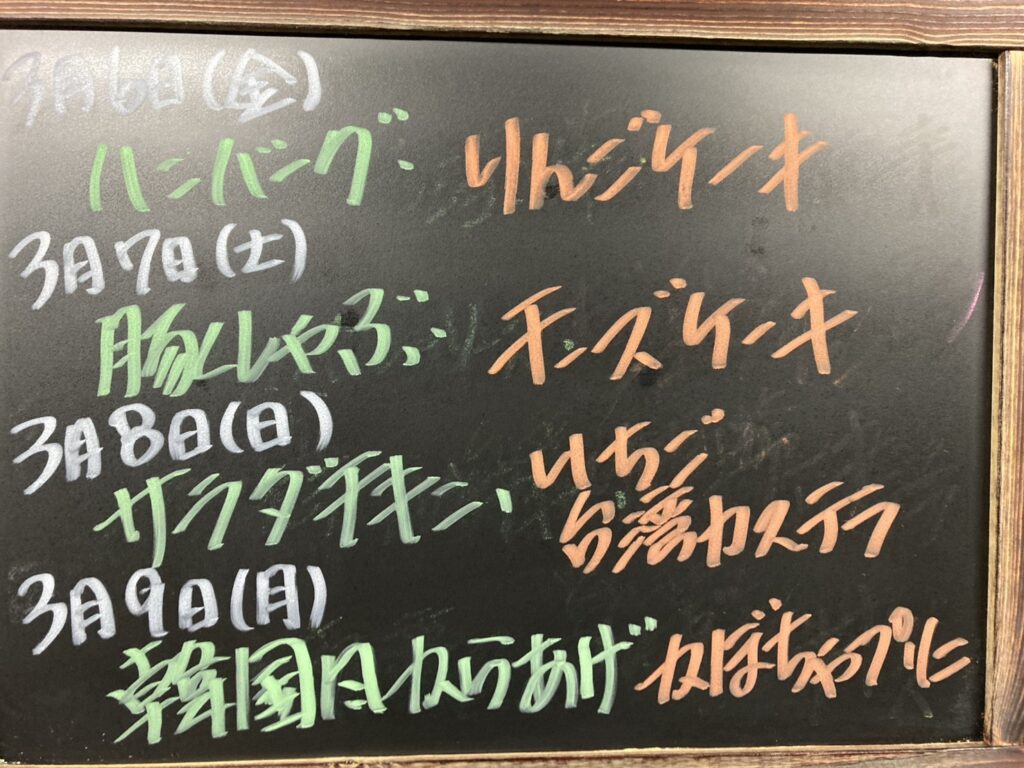 3月6日(金)
ハンバーグ、 りんごケーキ
3月7日(土)
豚しゃぶ、 チーズケーキ
3月8日(日)
サラダチキン、 いちご
台湾カステラ
3月9日(月)
韓国風からあげ かぼちゃプリン